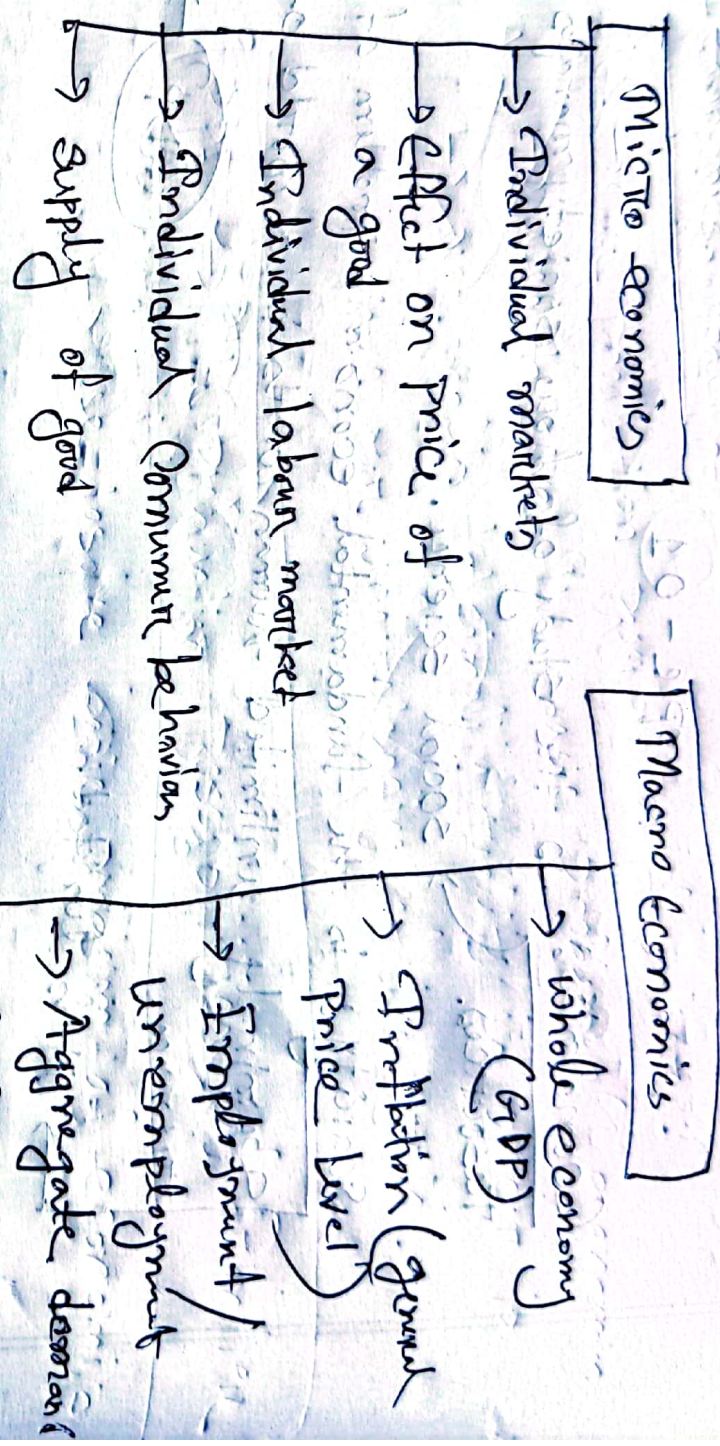 Micro economics
→ Individual markets
→ Effect on price of
a good
→ Individual labour market
→ Individual Consumer behaviour
→ supply of good
Macro Economics.
→ whole economy
(GDP)
→ Inflation (general
Price Level)
→ Employment/
Unemployment
→ Aggregate demand